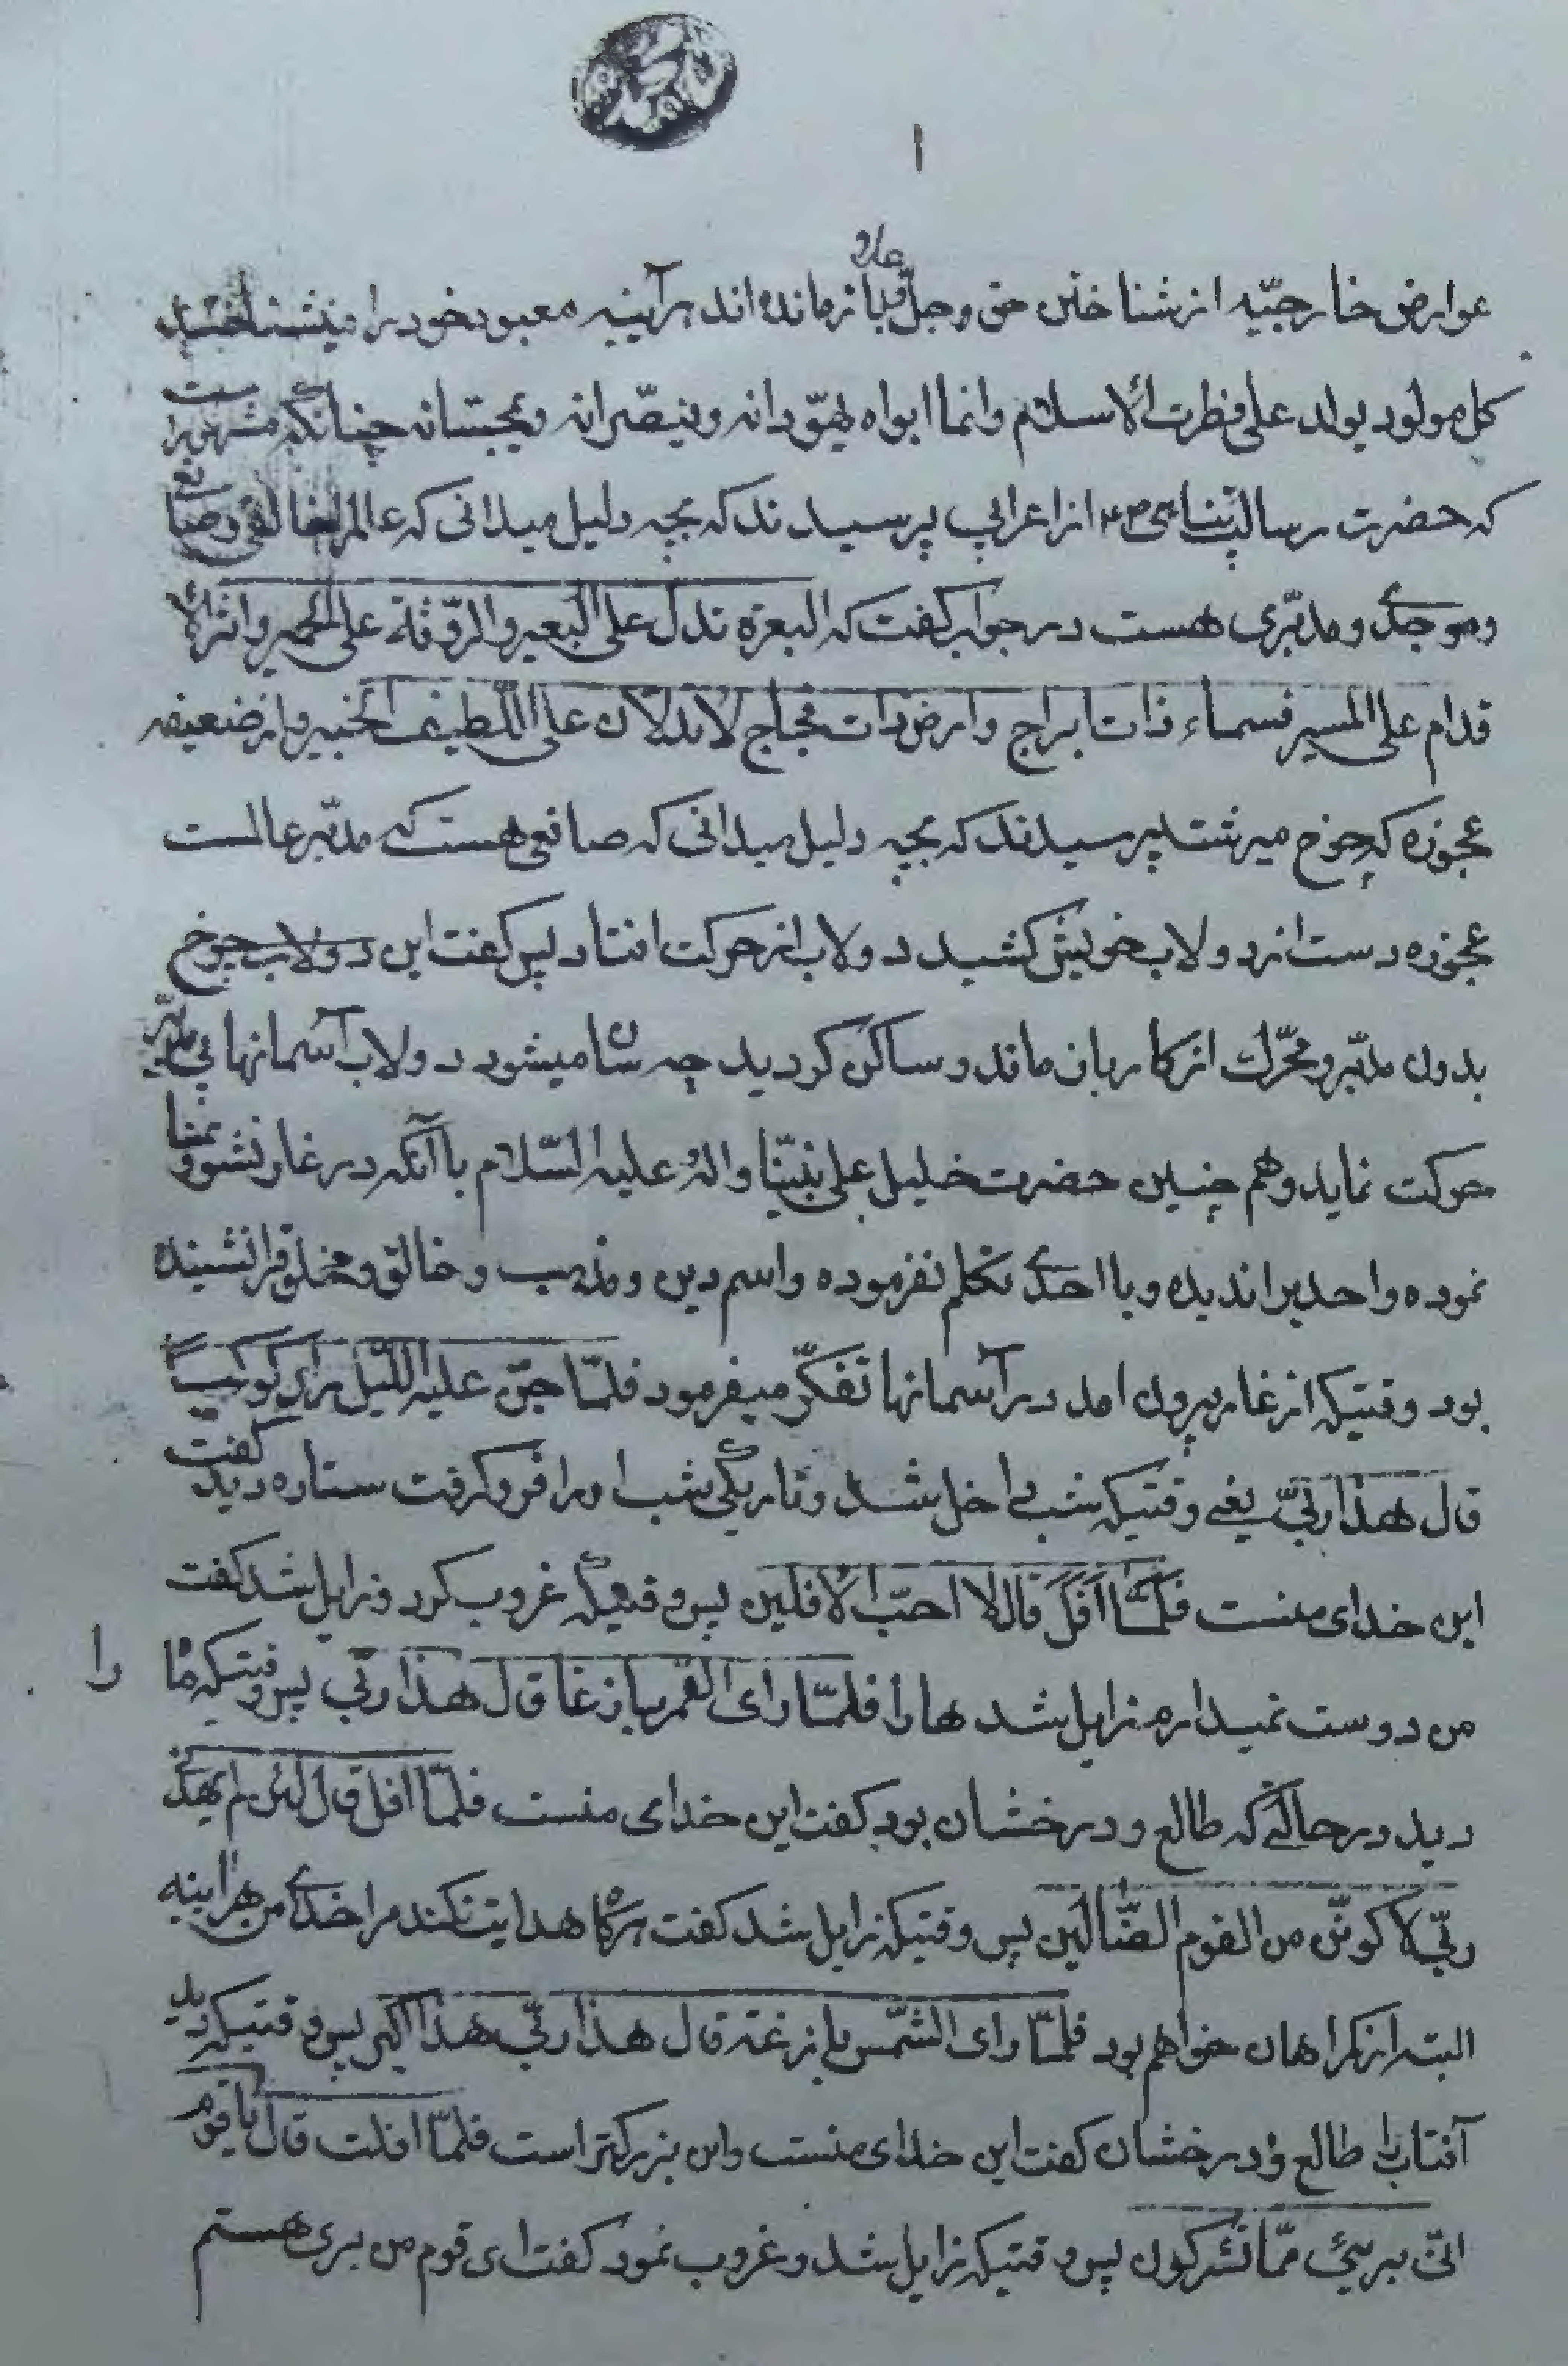 ۱
عوارض خارجیّه از شناختن حق وجلّ وعلا بازمانده اند هرآینه معبود خود را میشناختند
کل مولود یولد علی فطرت الاسلام وانما ابواه یهوّدانه وینصّرانه ویمجسّانه چنانکه مشهور است
که حضرت رسالتپناهی از اعرابی پرسیدند که بچه دلیل میدانی که عالم را خالقی وصانع
وموجدی ومدبّری هست در جواب کفت که البعرة تدل علی البعیر والرّوثة علی الحمیر واثر الا
قدام علی المسیر فسماء ذات ابراج وارض ذات فجاج لا تدلان علی اللّطیف الخبیر واز ضعیفه
عجوزه که چرخ میرشت پرسیدند که بچه دلیل میدانی که صانعی هست که مدبّر عالمست
عجوزه دست از دولاب خویش کشید دولاب از حرکت افتاد پس کفت این دولاب چرخ
بدون مدبّر ومحرّک از کار بازماند وساکن کردید چه سان میشود دولاب آسمانها بی مدبّر
حرکت نماید وهم چنین حضرت خلیل علی نبیّنا واله علیه السّلام با آنکه در غار نشو ونما
نموده واحدیرا ندیده وبا احدی تکلم نفرموده واسم دین ومذهب وخالق ومخلوقرا نشنیده
بود وقتیکه از غار بیرون امد در آسمانها تفکّر میفرمود فلمّا جنّ علیه اللّیل رای کوکباً
قال هذا ربّی یعنی وقتیکه شب داخل شد وتاریکی شب اورا فروکرفت ستاره دید کفت
این خدای منست فلمّا افل قال لا احبّ الافلین پس وقتیکه غروب کرد وزایل شد کفت
من دوست نمیدارم زایل شدهارا فلمّا رای القمر بازغا قال هذا ربّی پس وقتیکه ماه را
دید در حالتی که طالع ودرخشان بود کفت این خدای منست فلمّا افل قال لئن لم یهدنی
ربّی لاکوننّ من القوم الضّالّین پس وقتیکه زایل شد کفت هرکاه هدایت نکند مرا خدای من هراینه
البته از کمراهان خواهم بود فلمّا رای الشّمس بازغة قال هذا ربّی هذا اکبر پس وقتیکه دید
آفتاب را طالع ودرخشان کفت این خدای منست واین بزرکتر است فلمّا افلت قال یا قوم
انّی بریٔ ممّا تشرکون پس وقتیکه زایل شد وغروب نمود کفت ای قوم من بری هستم